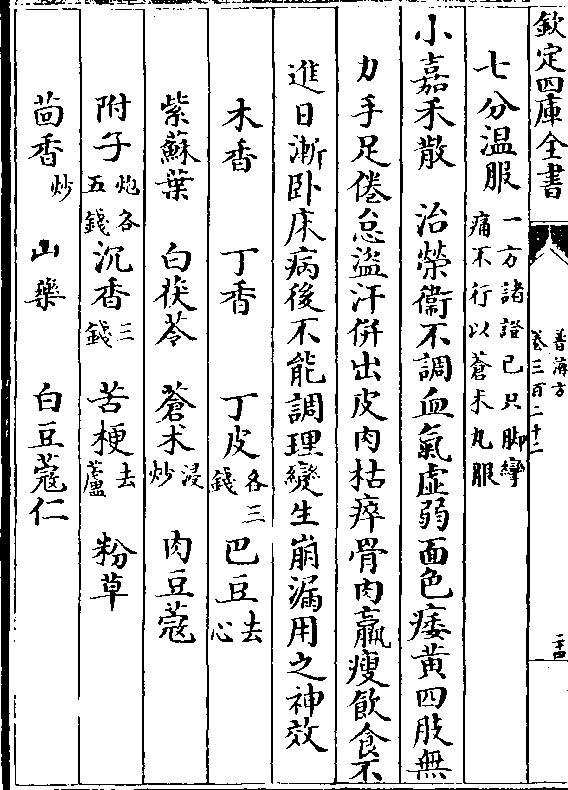 欽定四庫全書
普濟方
卷三百二十二
二十四
七分温服一方諸證已只脚攣
痛不行以蒼术丸服
小嘉禾散 治榮衞不調血氣虚弱面色痿黄四肢無
力手足倦怠盜汗併出皮肉枯瘁骨肉羸瘦飲食不
進日漸卧床病後不能調理變生崩漏用之神效
木香 丁香 丁皮各三錢 巴豆去心
紫蘇葉 白茯苓 蒼术浸炒 肉豆蔻
附子炮各五錢 沉香三錢 苦梗去蘆 粉草
茴香炒 山藥 白豆蔻仁